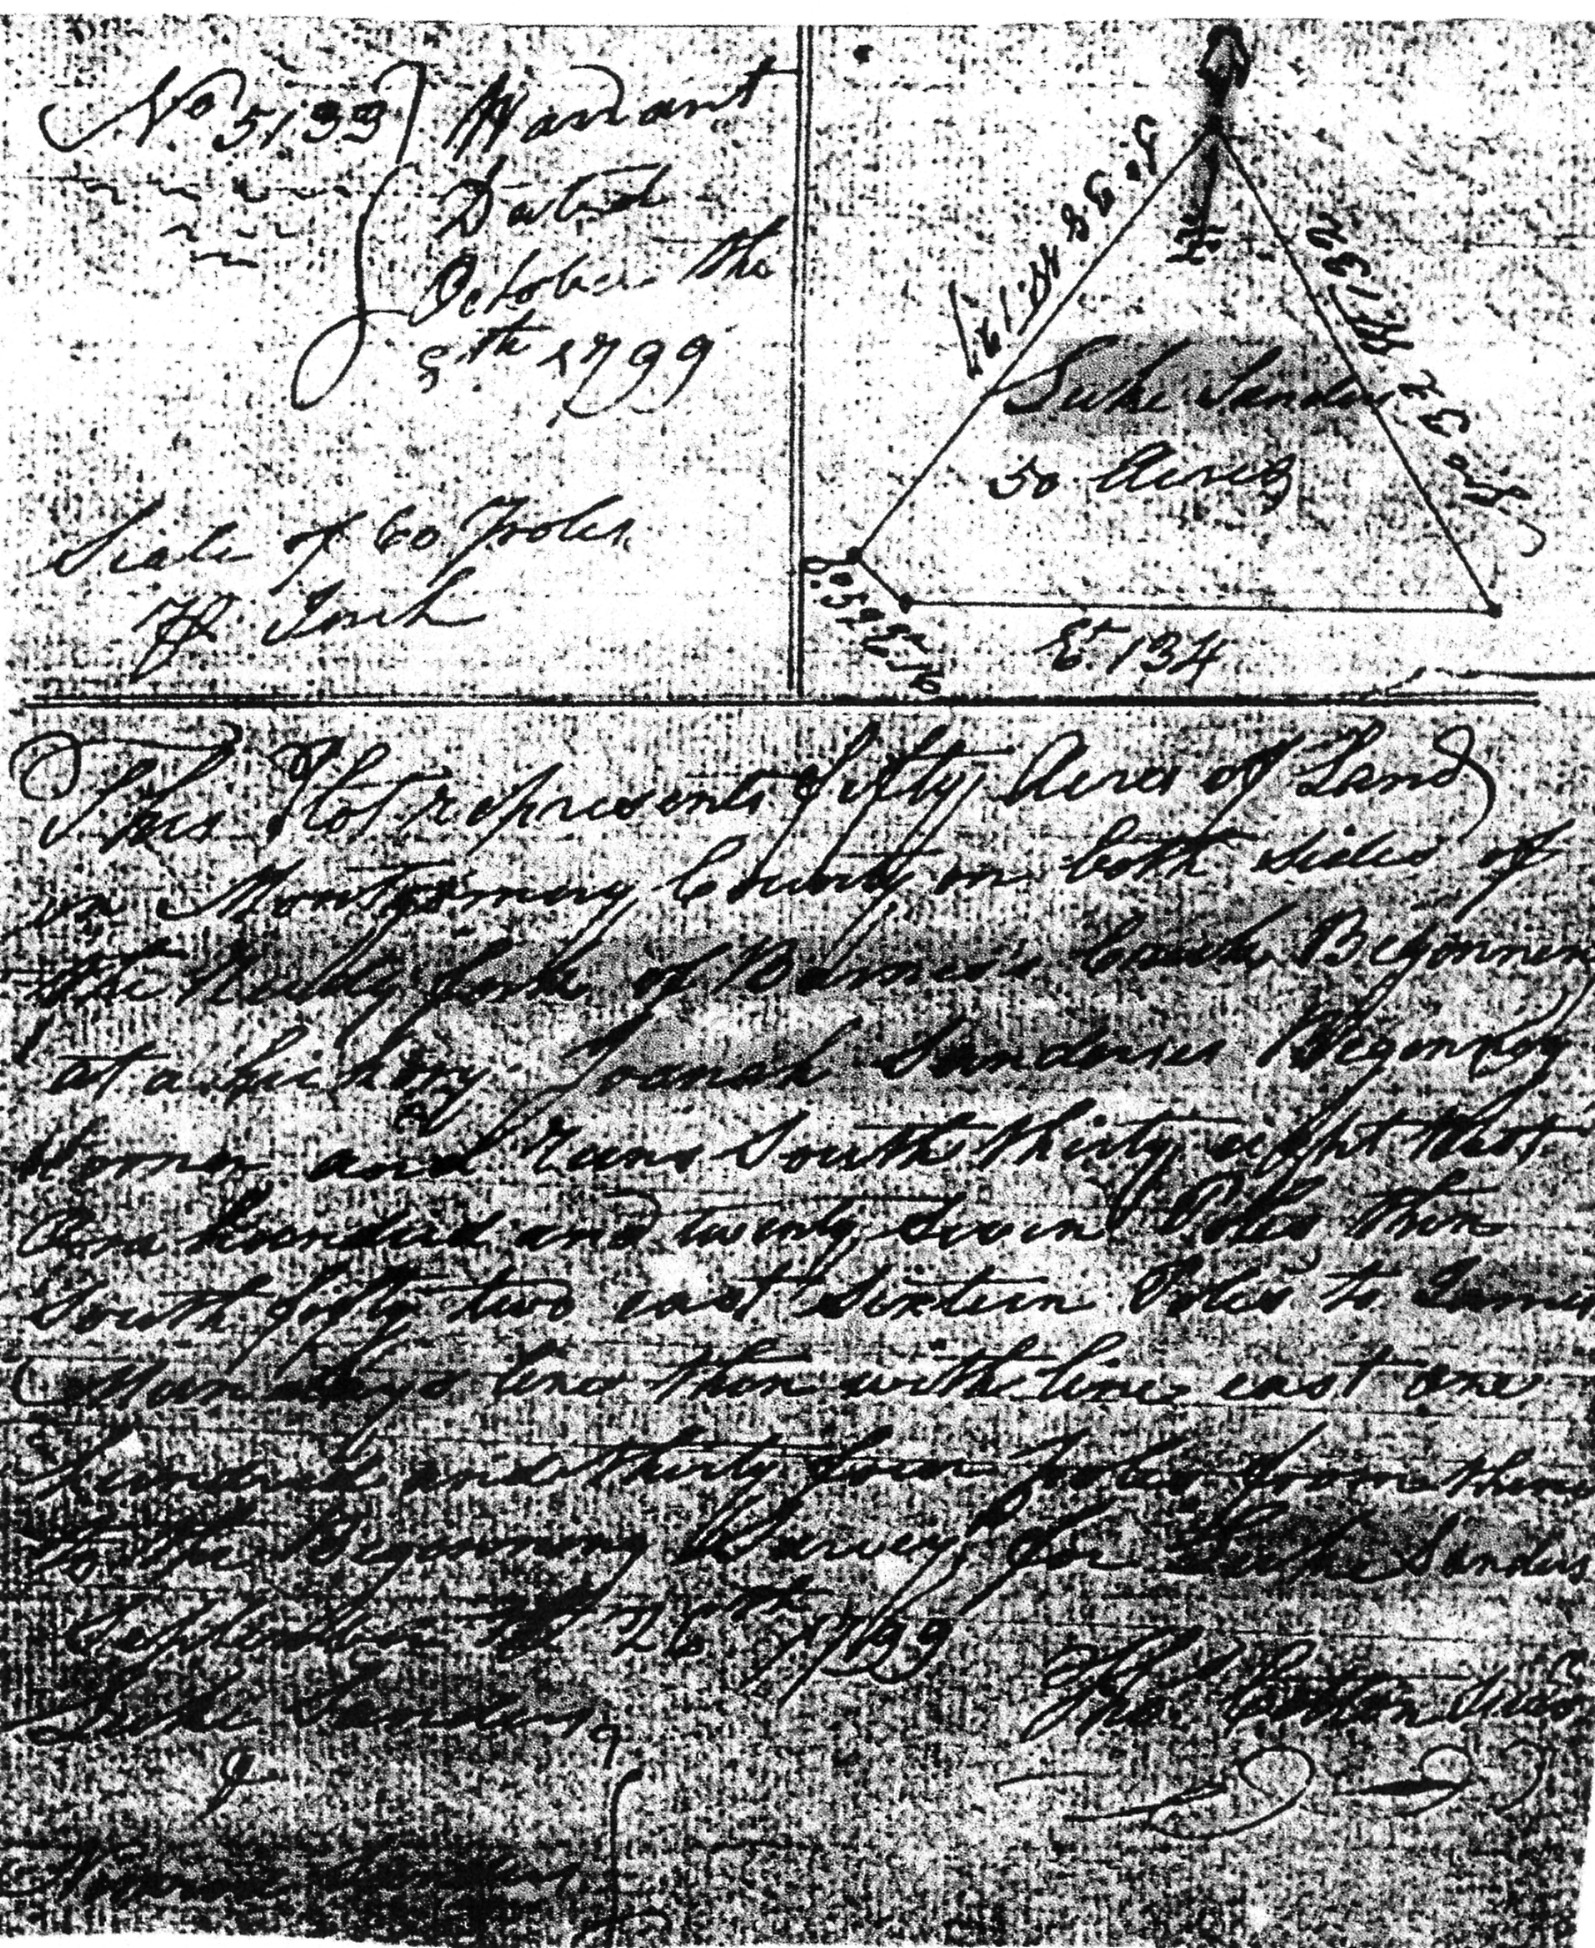 No 5133 Warrant
Dated
October the
9th 1799
Scale of 60 Poles
Pr Inch
So 38 Wt 127
No 32 Wt 132
Luke Sanders
50 Acres
So 52 Et 16
Et. 134
This Plot represents fifty Acres of Land
in Montgomery County on both sides of
the fork of Barnes's Creek Beginning
at a hickory Sanderses Begening
Korner and Runs South thirty eight West
One hundred and twenty seven Poles then
South fifty two east Sixteen Poles to James
line then with line east one
hundred and thirty four poles from thence
to the Beginning Survey for Luke Sanders
September the 26th 1799
Luke Sanders
Tho. Cotton
Sanders